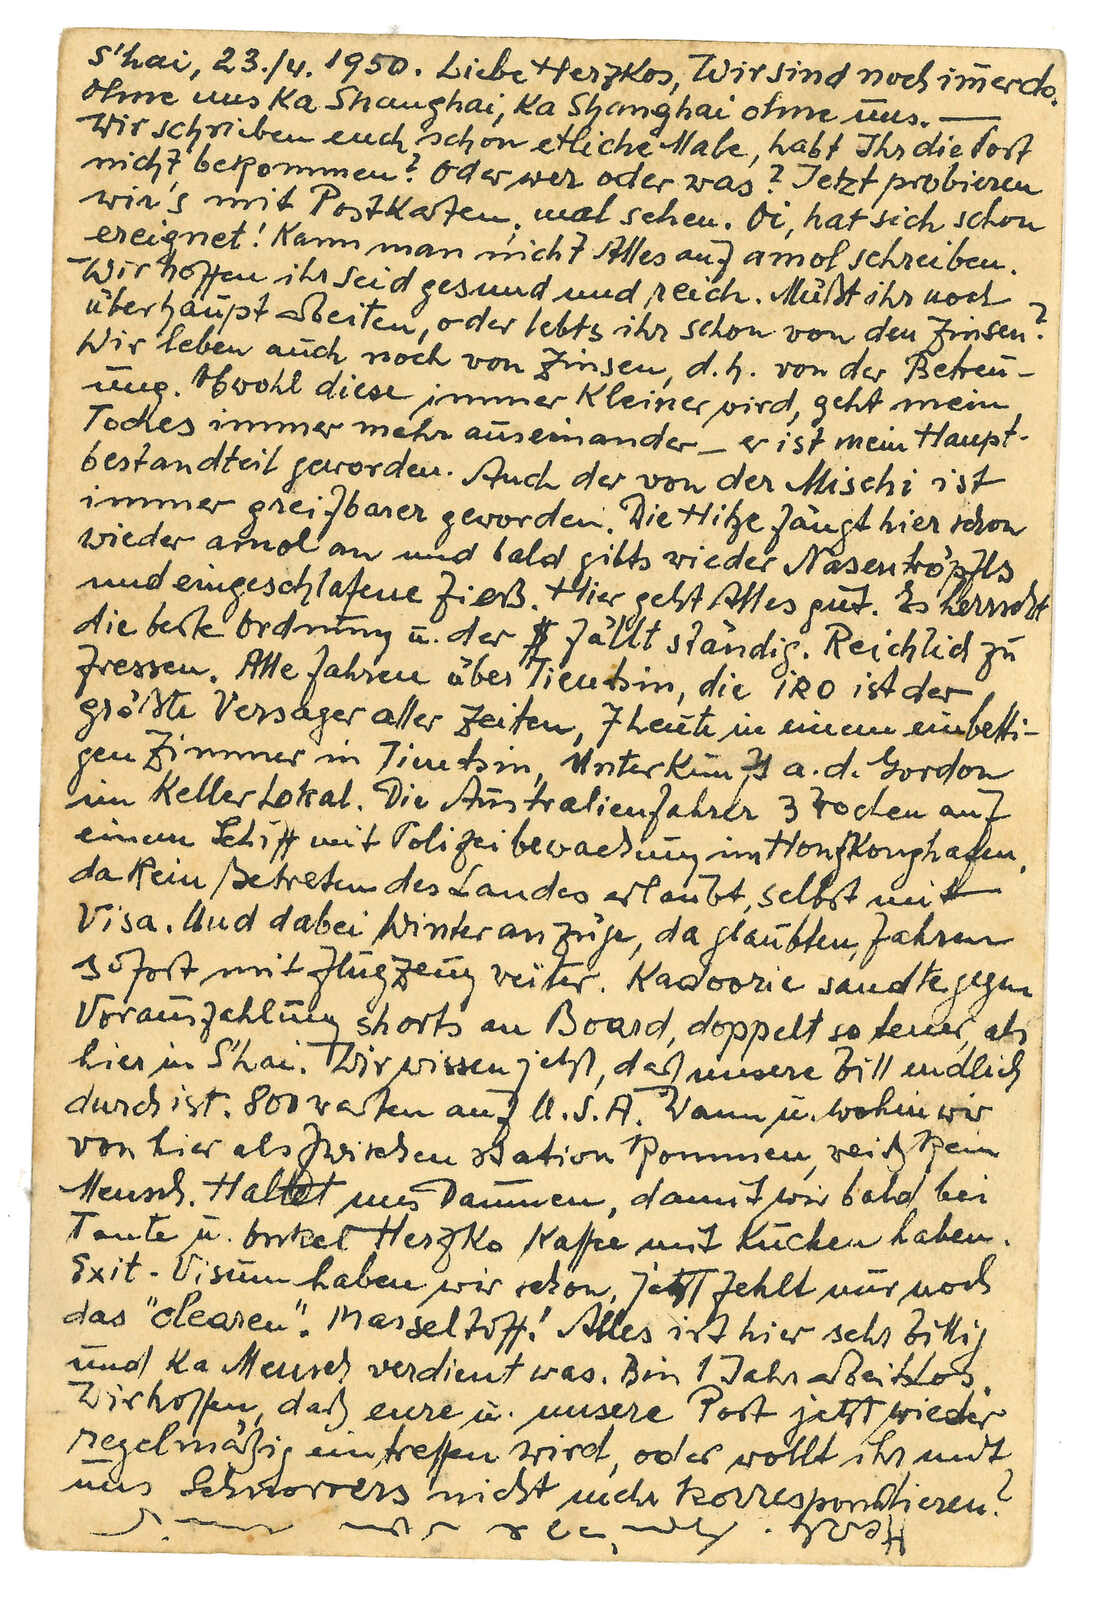 S'hai, 23./4. 1950. Liebe Herzkos, Wir sind noch immer do.
Ohne uns Ka Shanghai, Ka Shanghai ohne uns. —
Wir schrieben euch schon etliche Male, habt Ihr die Post
nicht bekommen? Oder wer oder was? Jetzt probieren
wir's mit Postkarten, mal sehen. Oi, hat sich schon
ereignet! Kann man nicht Alles auf amol schreiben.
Wir hoffen ihr seid gesund und reich. Müßt ihr noch
überhaupt arbeiten, oder lebts ihr schon von den Zinsen?
Wir leben auch noch von Zinsen, d.h. von der Betreu-
ung. Obwohl diese immer Kleiner wird, geht mein
Toches immer mehr auseinander – er ist mein Haupt-
bestandteil geworden. Auch der von der Mischi ist
immer greifbarer geworden. Die Hitze fängt hier schon
wieder amol an und bald gibts wieder Nasentröpfls
und eingeschlafene Fieß. Hier geht Alles gut. Es herrscht
die beste Ordnung u. der $ fällt ständig. Reichlich zu
fressen. Alle fahren über Tientsin, die IRO ist der
größte Versager aller Zeiten, 7 Leute in einem einbetti-
gen Zimmer in Tientsin, Unterkunft a. d. Gordon
im Kellerlokal. Die Australienfahrer 3 Wochen auf
einem Schiff mit Polizeibewachung im Hongkonghafen,
da Kein Betreten des Landes erlaubt, selbst mit
Visa. Und dabei Winteranzüge, da glaubten, fahren
sofort mit Flugzeug weiter. Kadoorie sandte gegen
Vorauszahlung shorts an Board, doppelt so teuer, als
hier in S'hai. Wir wissen jetzt, daß unsere Bill endlich
durch ist. 800 warten auf U.S.A. Wann u. wohin wir
von hier als Zwischenstation kommen, weiß kein
Mensch. Haltet uns Daumen, damit wir bald bei
Tante u. Onkel Herzko Kaffee mit Kuchen haben.
Exit-Visum haben wir schon, jetzt fehlt nur noch
das "clearen". Masseltoff! Alles ist hier sehr billig
und Ka Mensch verdient was. Bin 1 Jahr arbeitslos.
Wir hoffen, daß eure u. unsere Post jetzt wieder
regelmäßig eintreffen wird, oder wollt ihr mit
uns Schnorrers nicht mehr korrespondieren?